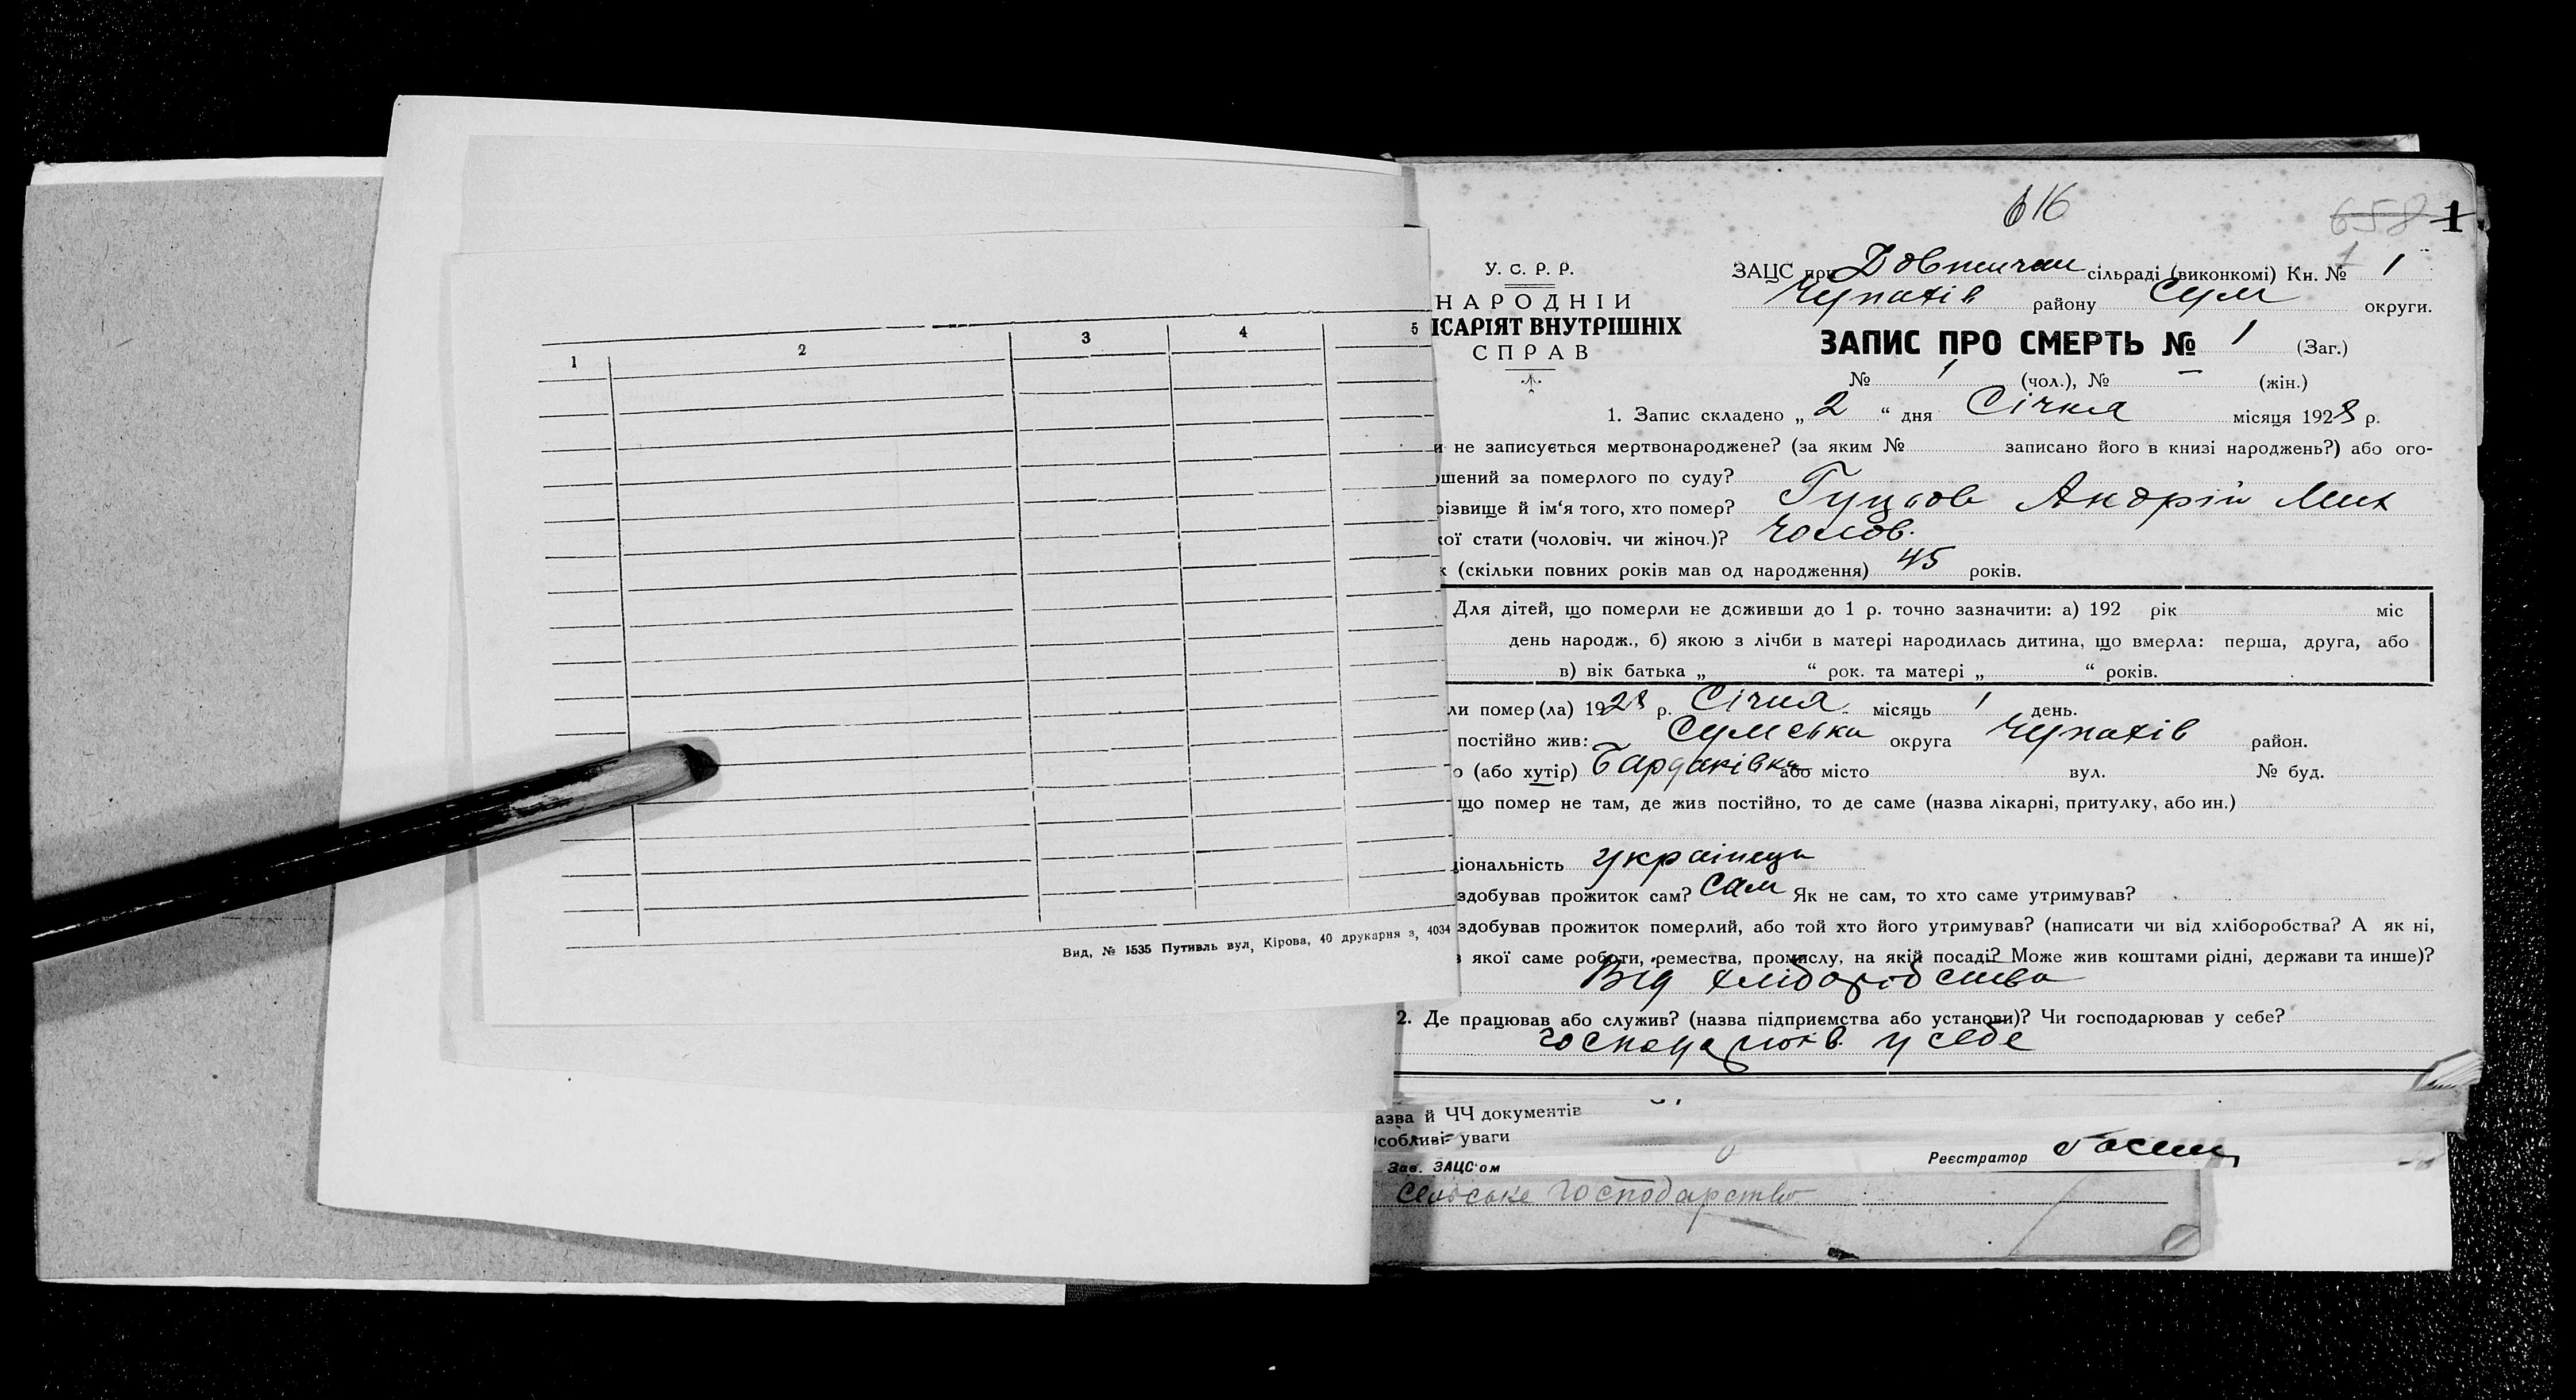 1 2 3 4 5
Вид, № 1535 Путивль вул, Кірова, 40 друкарня з, 4034
616
658 1
1
У. С. Р. Р.
НАРОДНІЙ
ІСАРІЯТ ВНУТРІШНІХ
СПРАВ
ЗАЦС при сільраді (виконкомі) Кн. № 1
Чупахів району Сум округи.
ЗАПИС ПРО СМЕРТЬ № 1 (Заг.)
№ 1 (чол.), № — (жін.)
1. Запис складено „ 2 “ дня Січня місяця 1928 р.
и не записується мертвонароджене? (за яким № записано його в книзі народжень?) або ого-
ошений за померлого по суду?
різвище й ім‘я того, хто помер? Гуцьов Андрій Мих
кої стати (чоловіч. чи жіноч.)? чолов.
к (скільки повних років мав од народження) 45 років.
Для дітей, що померли не доживши до 1 р. точно зазначити: а) 192 рік міс
день народж., б) якою з лічби в матері народилась дитина, що вмерла: перша, друга, або
в) вік батька „ “ рок. та матері „ “ років.
ли помер(ла) 1928 р. Січня місяць 1 день.
постійно жив: Сумська округа Чупахів район.
о (або хутір) Бардаківка або місто вул. № буд.
що помер не там, де жив постійно, то де саме (назва лікарні, притулку, або ин.)
ціональність українець
здобував прожиток сам? Сам Як не сам, то хто саме утримував?
здобував прожиток померлий, або той хто його утримував? (написати чи від хліборобства? А як ні,
з якої саме роботи, ремества, промислу, на якій посаді? Може жив коштами рідні, держави та инше)?
Від хліборобства
2. Де працював або служив? (назва підприємства або установи)? Чи господарював у себе?
господарюв. у себе
азва й ЧЧ документів
особливі уваги
Зав. ЗАЦС‘ом Реєстратор
Сельське господарство